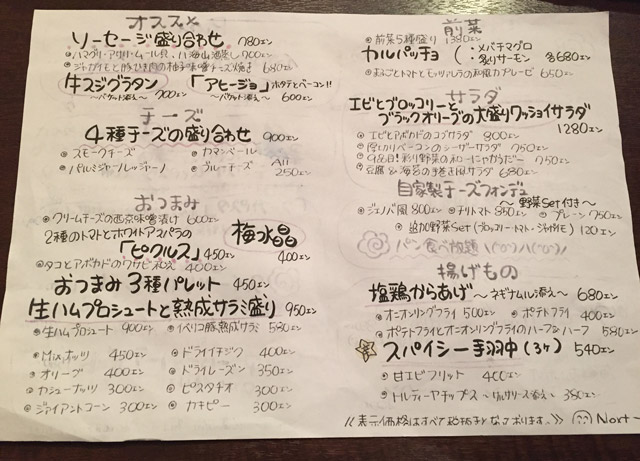 オススメ
ソーセージ盛り合わせ 780エン
ハマグリ・アサリ・ムール貝、八海山酒蒸し 900エン
ジャガイモと豚ひき肉の柚子味噌チーズ焼き 680エン
牛スジグラタン 「アヒージョ」ホタテとベーコン!!
〜バケット添え〜 700エン 〜バケット添え〜 600エン
チーズ
4種チーズの盛り合わせ 900エン
スモークチーズ カマンベール All
パルミジャーノレッジャーノ ブルーチーズ 250エン
おつまみ
クリームチーズの西京味噌漬け 600エン
2種のトマトとホワイトアスパラの 梅水晶
「ピクルス」 450エン 400エン
タコとアボカドのワサビ和え 400エン
おつまみ3種パレット 450エン
生ハムプロシュートと熟成サラミ盛り 950エン
生ハムプロシュート 900エン イベリコ豚熟成サラミ 580エン
Mixナッツ 450エン ドライイチジク 400エン
オリーブ 400エン ドライレーズン 350エン
カシューナッツ 300エン ピスタチオ 300エン
ジャイアントコーン 300エン カキピー 300エン
前菜
前菜5種盛り 1380エン
カルパッチョ ( :メバチマグロ
:炙りサーモン 各680エン
まるごとトマトとモッツァレラの和風カプレーゼ 650エン
サラダ
エビとブロッコリーと
ブラックオリーブの大盛りワッショイサラダ
1280エン
エビとアボカドのコブサラダ 800エン
厚切りベーコンのシーザーサラダ 750エン
9品目!彩り野菜の和ーにゃカウだー 750エン
豆腐&海苔のチョレギ風サラダ 650エン
自家製チーズフォンデュ
〜野菜Set付き〜
ジェノバ風 800エン チリトマト 850エン プレーン 750エン
追加野菜Set (ブロッコリー・トマト・ジャガイモ) 120エン
パン食べ放題
揚げもの
塩鶏からあげ 〜ネギナムル添え〜 680エン
オニオンリングフライ 500エン ポテトフライ 400エン
ポテトフライとオニオンリングフライのハーフ&ハーフ 580エン
スパイシー手羽中(3ヶ) 540エン
甘エビフリット 400エン
トルティーヤチップス 〜サルサソース添え〜 380エン
《表示価格はすべて税抜きとなっております。》